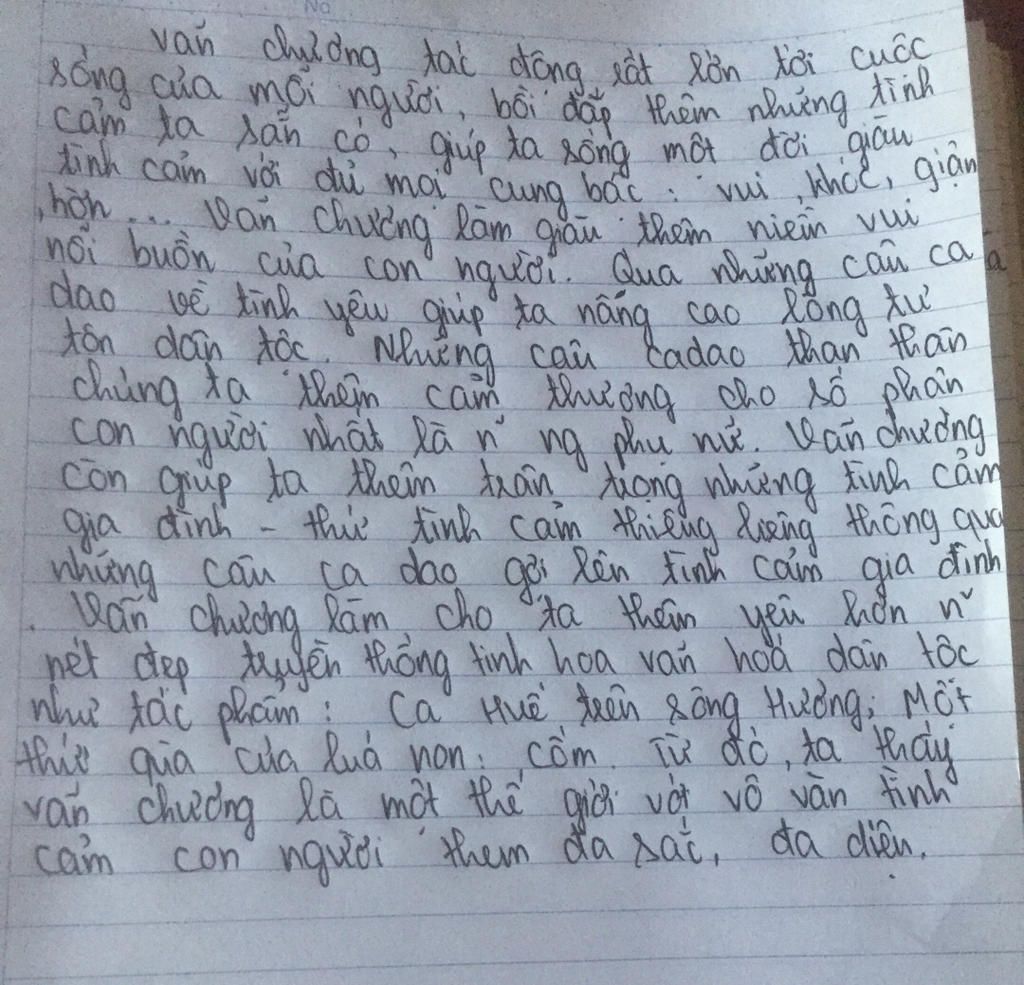 Văn chương tác động rất lớn tới cuộc
sống của mỗi người, bồi đắp thêm những tình
cảm ta sẵn có, giúp ta sống một đời giàu
tình cảm với đủ mọi cung bậc: vui, khóc, giận
hờn... Văn chương làm giàu thêm niềm vui
nỗi buồn của con người. Qua những câu ca
dao về tình yêu giúp ta nâng cao lòng tự
tôn dân tộc. Những câu cadao than thân
chúng ta thêm cảm thương cho số phận
con người nhất là n~ ng phụ nữ. Văn chương
còn giúp ta thêm trân trọng những tình cảm
gia đình - thứ tình cảm thiêng liêng thông qua
những câu ca dao gợi lên tình cảm gia đình
. Văn chương làm cho ta thêm yêu hơn n~
nét đẹp truyền thống tinh hoa văn hoá dân tộc
như tác phẩm: Ca Huế trên sông Hương; Một
thứ quà của luá non: cốm. Từ đó, ta thấy
văn chương là một thế giới với vô vàn tình
cảm con người them đa sắc, đa diện.